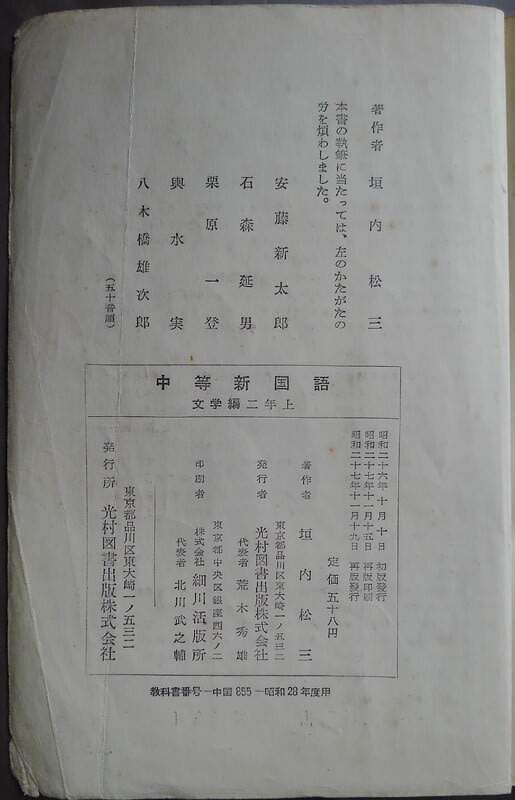 著作者 垣内松三
本書の執筆に当たっては、左のかたがたの
労を煩わしました。
安藤新太郎
石森延男
栗原一登
輿水実
八木橋雄次郎
(五十音順)
中等新国語
文学編二年上
昭和二十六年十月十日 初版発行
昭和二十七年十一月十五日 再版印刷
昭和二十七年十一月十九日 再版発行
定価五十八円
著作者 垣内松三
東京都品川区東大崎一ノ五三二
発行者 光村図書出版株式会社
代表者 荒木秀雄
東京都中央区銀座西六ノ二
印刷者 株式会社 細川活版所
代表者 北川武之輔
東京都品川区東大崎一ノ五三二
発行所 光村図書出版株式会社
教科書番号―中国855―昭和28年度用